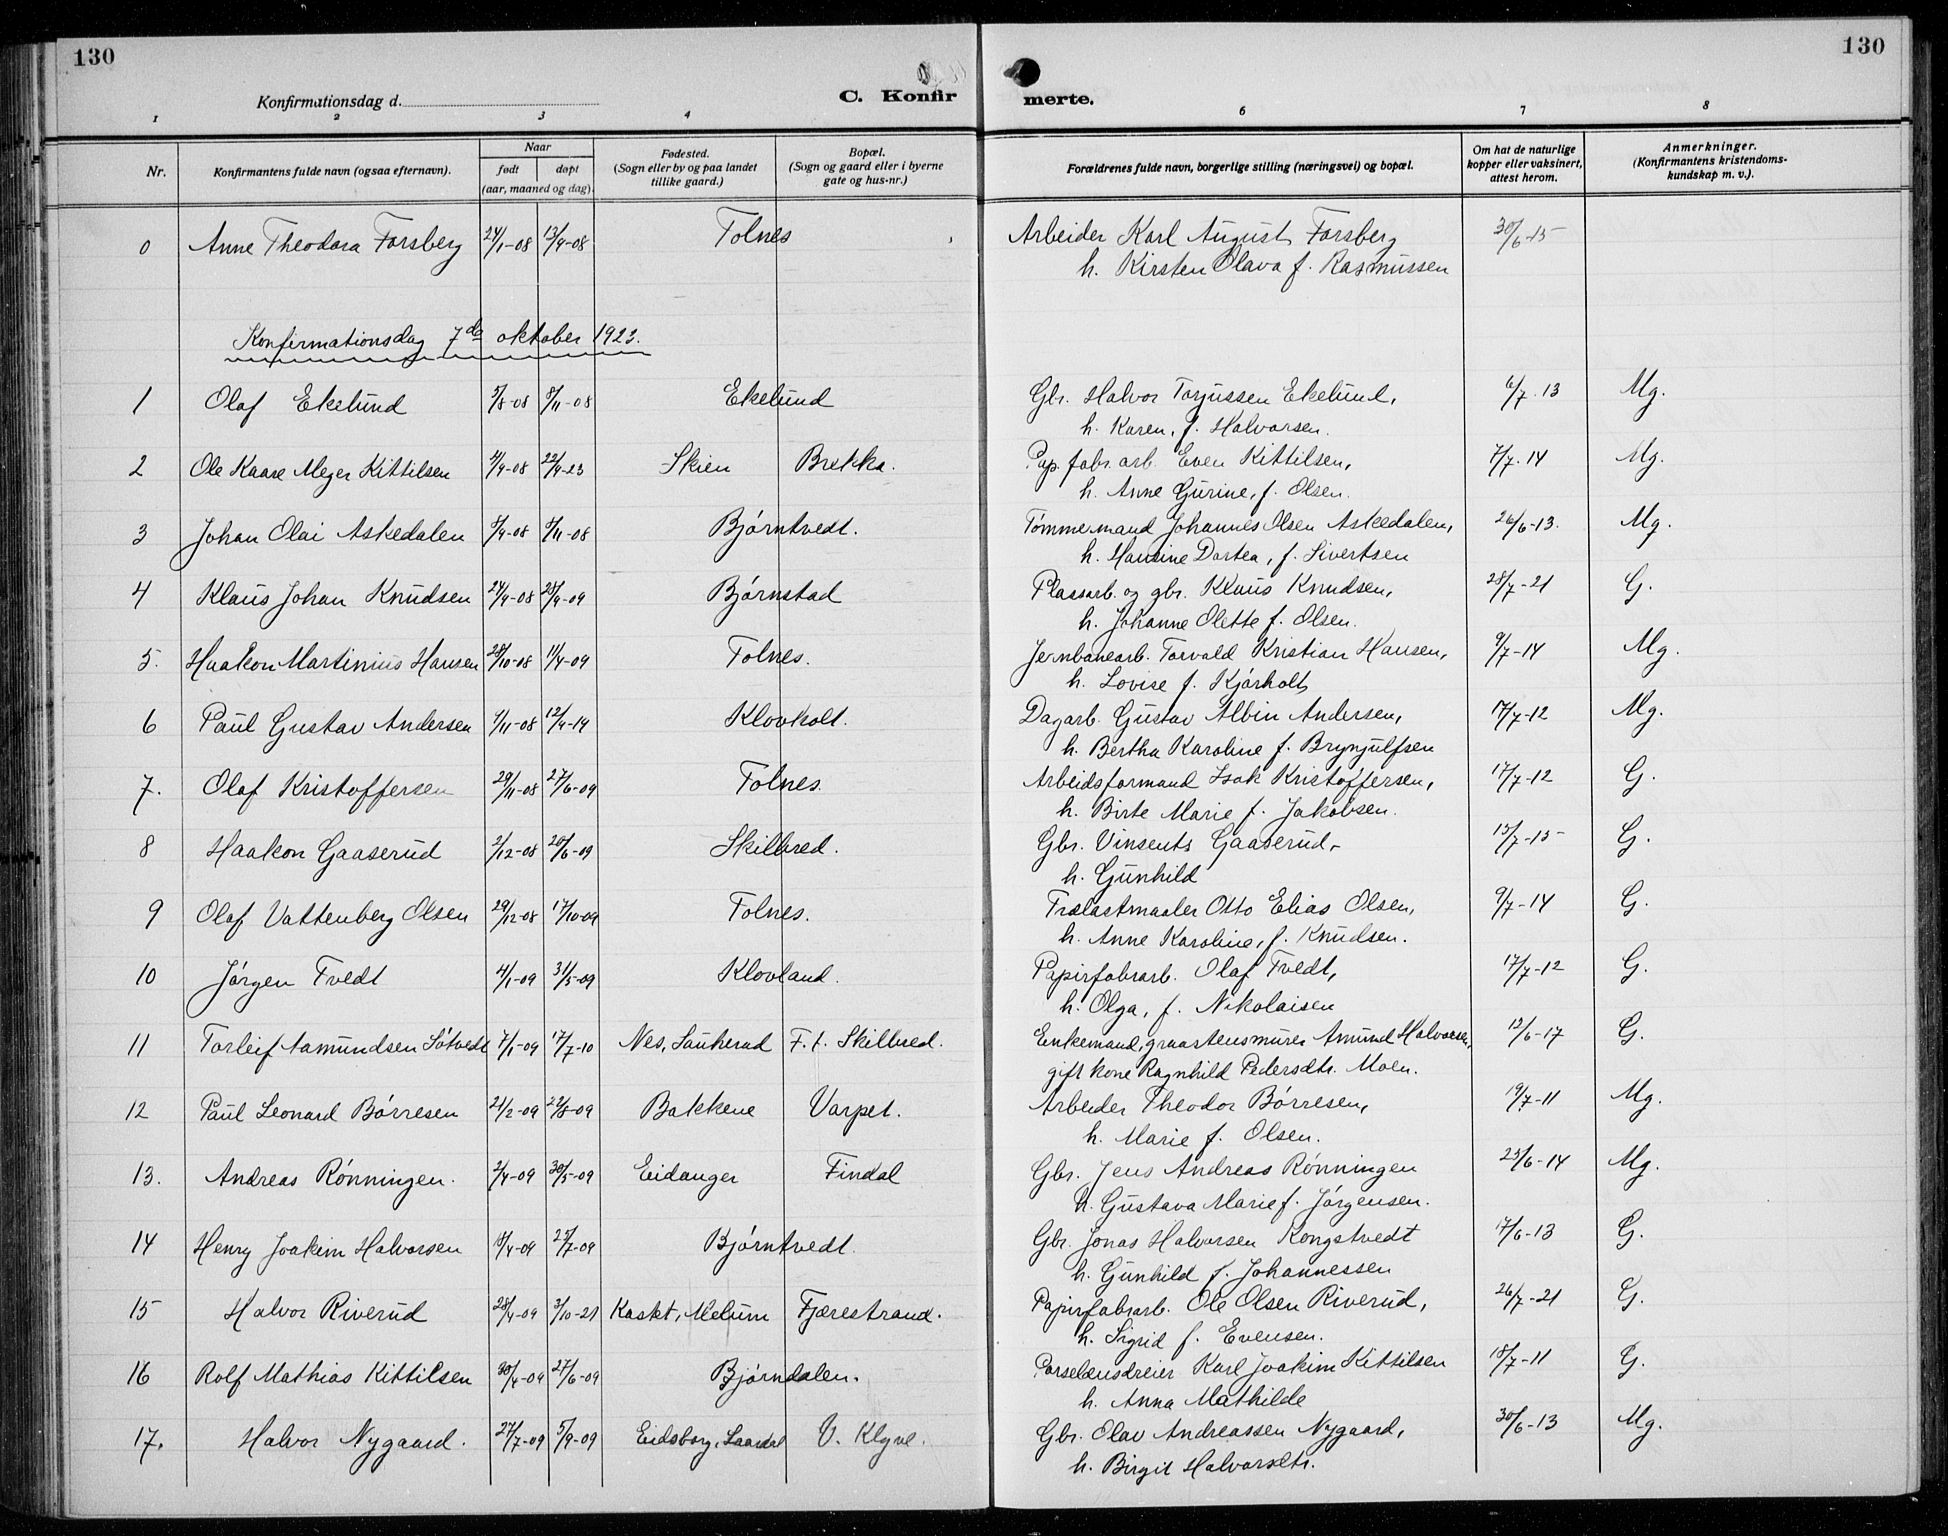 130
130
Konfirmationsdag d.
C. Konfirmerte.
1 2 3 4 6 7 8
Nr.
Konfirmantens fulde navn (ogsaa efternavn).
Naar født døpt (aar, maaned og dag).
Fødested. (Sogn eller by og paa landet tillike gaard.)
Bopæl. (Sogn og gaard eller i byerne gate og hus-nr.)
Forældrenes fulde navn, borgerlige stilling (næringsvei) og bopæl.
Om hat de naturlige kopper eller vaksinert, attest herom.
Anmerkninger. (Konfirmantens kristendoms-kundskap m. v.).
0 Anne Theodora Forsberg 24/1-08 13/9-08 Tolnes Arbeider Karl August Forsberg 30/6-15
h. Kirsten Olava f. Rasmussen
Konfirmationsdag 7de oktober 1923.
1 Olaf Ekelund 5/8-08 8/11-08 Ekelund Gbr. Halvor Torjussen Ekelund, 6/7-13 Mg.
h. Karen, f. Halvorsen.
2 Ole Kaare Meyer Kittilsen 4/9-08 22/9-23 Skien Brekka. Pap.fabr.arb. Even Kittilsen, 7/7-14 Mg.
h. Anne Gurine, f. Olsen.
3 Johan Olai Askedalen 8/9-08 8/11-08 Bjørntvedt. Tømmermand Johannes Olsen Askedalen, 26/6-13. Mg.
h. Hansine Dortea, f. Sivertsen
4 Klaus Johan Knudsen 24/9-08 25/9-09 Bjørnstad Plassarb. og gbr. Klaus Knudsen, 28/7-21 G.
h. Johanne Olette f. Olsen.
5. Haakon Martinius Hansen 28/10-08 11/4-09 Tolnes. Jernbanearb. Torvald Kristian Hansen, 9/7-14 Mg.
h. Lovise f. Kjørholt
6 Paul Gustav Andersen 4/11-08 12/4-14 Klovholt. Dagarb. Gustav Albin Andersen, 17/7-12 Mg.
h. Bertha Karoline f. Brynjulfsen
7. Olaf Kristoffersen 29/11-08 27/6-09 Tolnes. Arbeidsformand Isak Kristoffersen, 17/7-12 G.
h. Birte Marie f. Jakobsen.
8 Haakon Gaaserud 2/12-08 20/6-09 Skilbred. Gbr. Vinsents Gaaserud, 15/7-15 G.
h. Gunhild
9 Olaf Vattenberg Olsen 29/12-08 17/10-09 Tolnes. Trælastmaaler Otto Elias Olsen, 9/7-14 G.
h. Anne Karoline, f. Knudsen.
10 Jørgen Tvedt 4/1-09 31/5-09 Klovland. Papirfabrarb. Olaf Tvedt, 17/7-12 G.
h. Olga, f. Nikolaisen
11 Torleif Aamundsen Søtvedt 7/1-09 17/7-10 Nes, Sauherad F.t. Skilbred. Enkemand, graastensmurer Amund Halvorsen, 12/6-17 G.
gift kone Ragnhild Pedersdtr. Moen.
12 Paul Leonard Børresen 21/2-09 22/8-09 Bakkene Varpet. Arbeider Theodor Børresen, 19/7-11 Mg.
h. Marie f. Olsen.
13. Andreas Rønningen. 2/4-09 30/5-09 Eidanger Findal Gbr. Jens Andreas Rønningen 25/6-14 Mg.
h. Gustava Marie f. Jørgensen.
14 Henry Joakim Halvorsen 18/4-09 25/7-09 Bjørntvedt. Gbr. Jonas Halvorsen Kongstvedt 17/6-13 G.
h. Gunhild f. Johannessen
15 Halvor Riverud 28/4-09 3/10-21 Kaskt, Melum Fjærestrand. Papirfabrarb. Ole Olsen Riverud, 26/7-21 G.
h. Sigrid f. Evensen.
16 Rolf Mathias Kittilsen 30/4-09 27/6-09 Bjørndalen. Porselænsdreier Karl Joakim Kittilsen 18/7-11 G.
h. Anna Mathilde
17. Halvor Nygaard. 27/7-09 5/9-09 Eidsborg, Laardal V. Klyve. Gbr. Olav Andreassen Nygaard, 30/6-13 Mg.
h. Birgit Halvorsdtr.